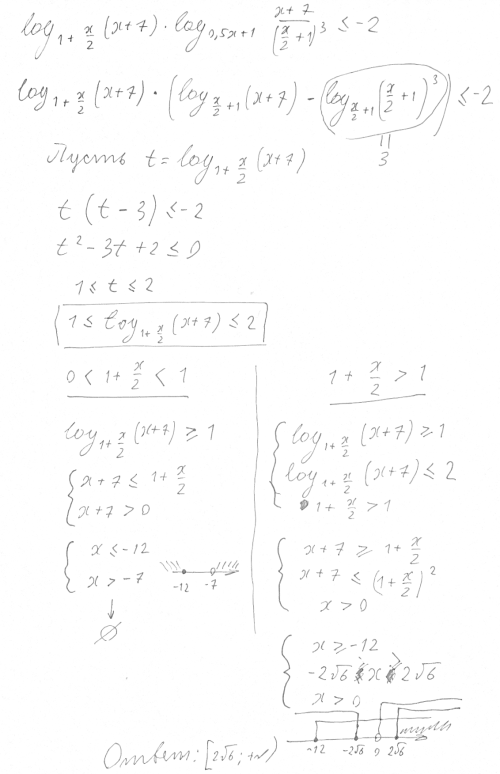 log_{1+x/2}(x+7) · log_{0,5x+1} (x+7)/(x/2+1)^3 ≤ -2
log_{1+x/2}(x+7) · (log_{x/2+1}(x+7) - (log_{x/2+1}(x/2+1)^3)) ≤ -2
||
3
Пусть t = log_{1+x/2}(x+7)
t(t-3) ≤ -2
t² - 3t + 2 ≤ 0
1 ≤ t ≤ 2
1 ≤ log_{1+x/2}(x+7) ≤ 2
0 < 1 + x/2 < 1
log_{1+x/2}(x+7) ≥ 1
{ x+7 ≤ 1 + x/2
x+7 > 0
{ x ≤ -12
x > -7
-12 -7
↓
∅
1 + x/2 > 1
{ log_{1+x/2}(x+7) ≥ 1
log_{1+x/2}(x+7) ≤ 2
1 + x/2 > 1
{ x+7 ≥ 1 + x/2
x+7 ≤ (1 + x/2)²
x > 0
{ x ≥ -12
-2√6 x 2√6
x > 0
-12 -2√6 0 2√6
Ответ: [2√6; +∞)